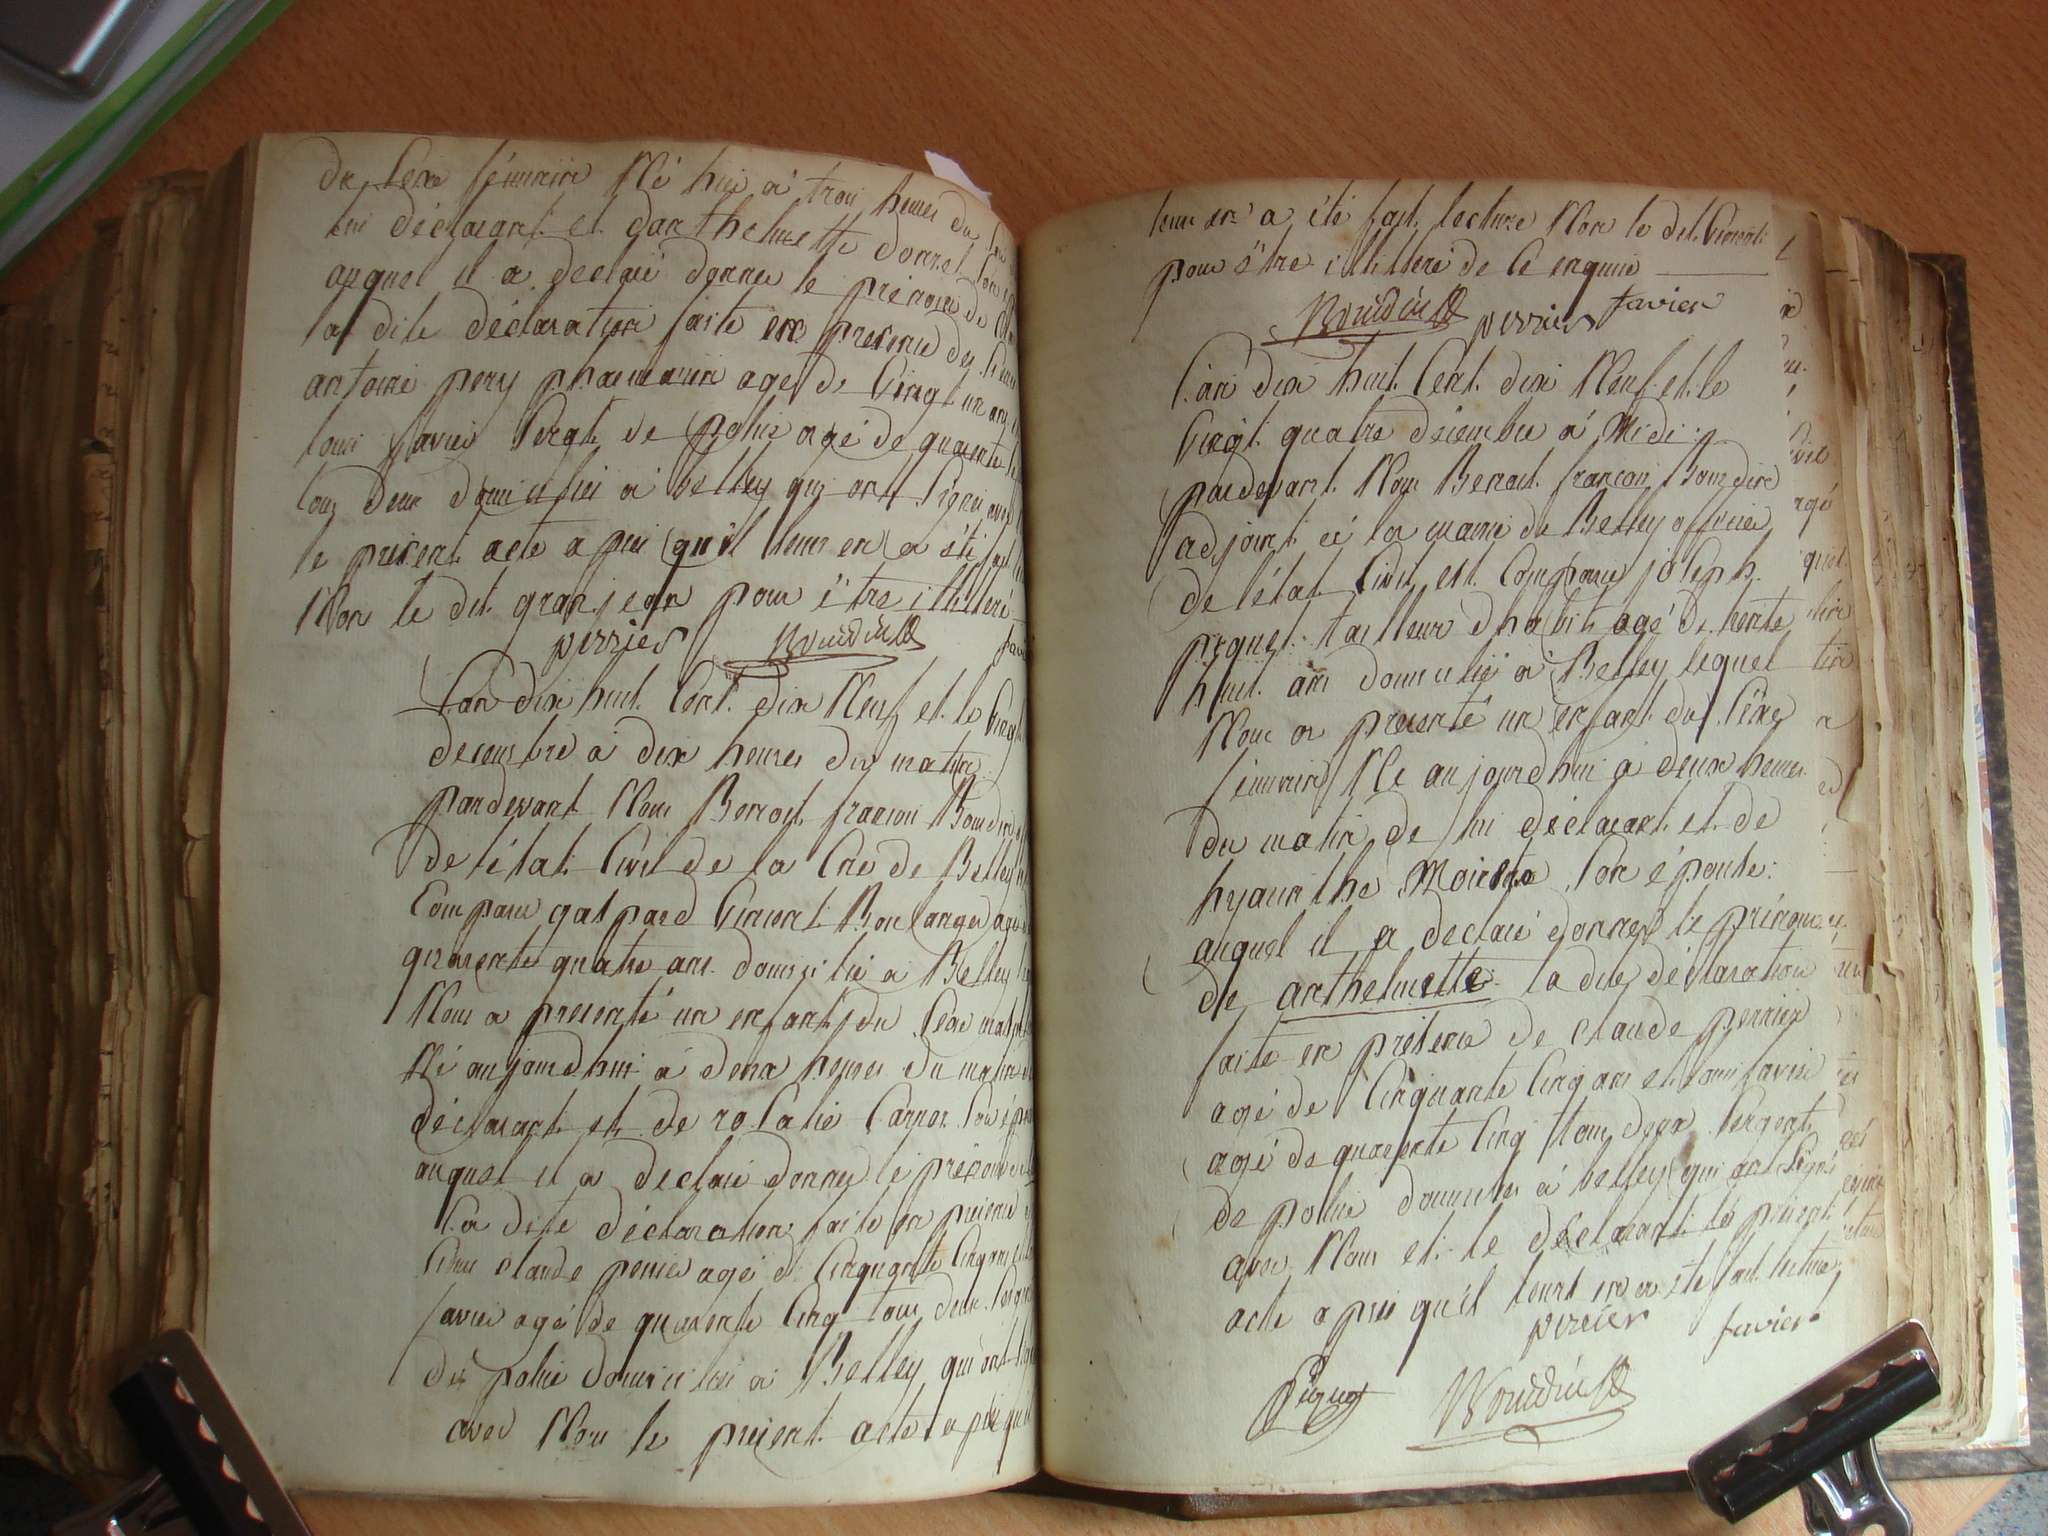 de Sexe féminin Né hier à trois heures du
lui déclarant et d'anthelmette
auquel il a declaré donner le prénom de
la dite déclaration faite en presence des
antoine pery pharmacien agé de Vingt un ans
louis favier Sergt de police agé de quarente
tous deux domiciliés à Belley qui ont Signé avec
le present acte apres qu'il leurs en a été
Non le dit granjean pour être illitteré
perrier Bourdin favier
L'an dix huit Cent dix Neuf et le Vingt
decembre à dix heures du matin
pardevant Nous Benoit françois Bourdin
de l'état Civil de la Cne de Belley
Comparu gaspard Vincent Boulanger agé
quarente quatre ans domicilié à Belley
Nous a presenté un enfant du Sexe
Né aujourd'hui à deux heures du matin
déclarant et de rosalie
auquel il a declaré donner le prenom de
la dite déclaration faite en presence
claude perrier agé de Cinquante Cinq ans
favier agé de quarente Cinq tous deux
de police domiciliés à Belley qui ont
avec Nous le present acte apres
leurs en a été fait lecture Non le dit Vincent
pour être illitteré de Ce enquis
Bourdin perrier favier
L'an dix huit Cent dix Neuf et le
Vingt quatre decembre à Midi
pardevant Nous Benoit françois Bourdin
adjoint à la mairie de Belley officier
de l'état Civil est Comparu joseph
piquet tailleur d'habits agé de trente
huit ans domicilié à Belley lequel
Nous a presenté un enfant du Sexe
féminin Né aujourdhui à deux heures
du matin de lui déclarant et de
hyacinthe Son épouse
auquel il a declaré donner le prénom
de anthelmette la dite déclaration
faite en presence de claude perrier
agé de Cinquante Cinq ans et louis favier
agé de quarente Cinq tous deux Sergents
de police domiciliés à belley qui ont Signé
avec Nous et le déclarant le present
acte apres qu'il leurs en a été fait lecture
perrier favier
Piquet Bourdin